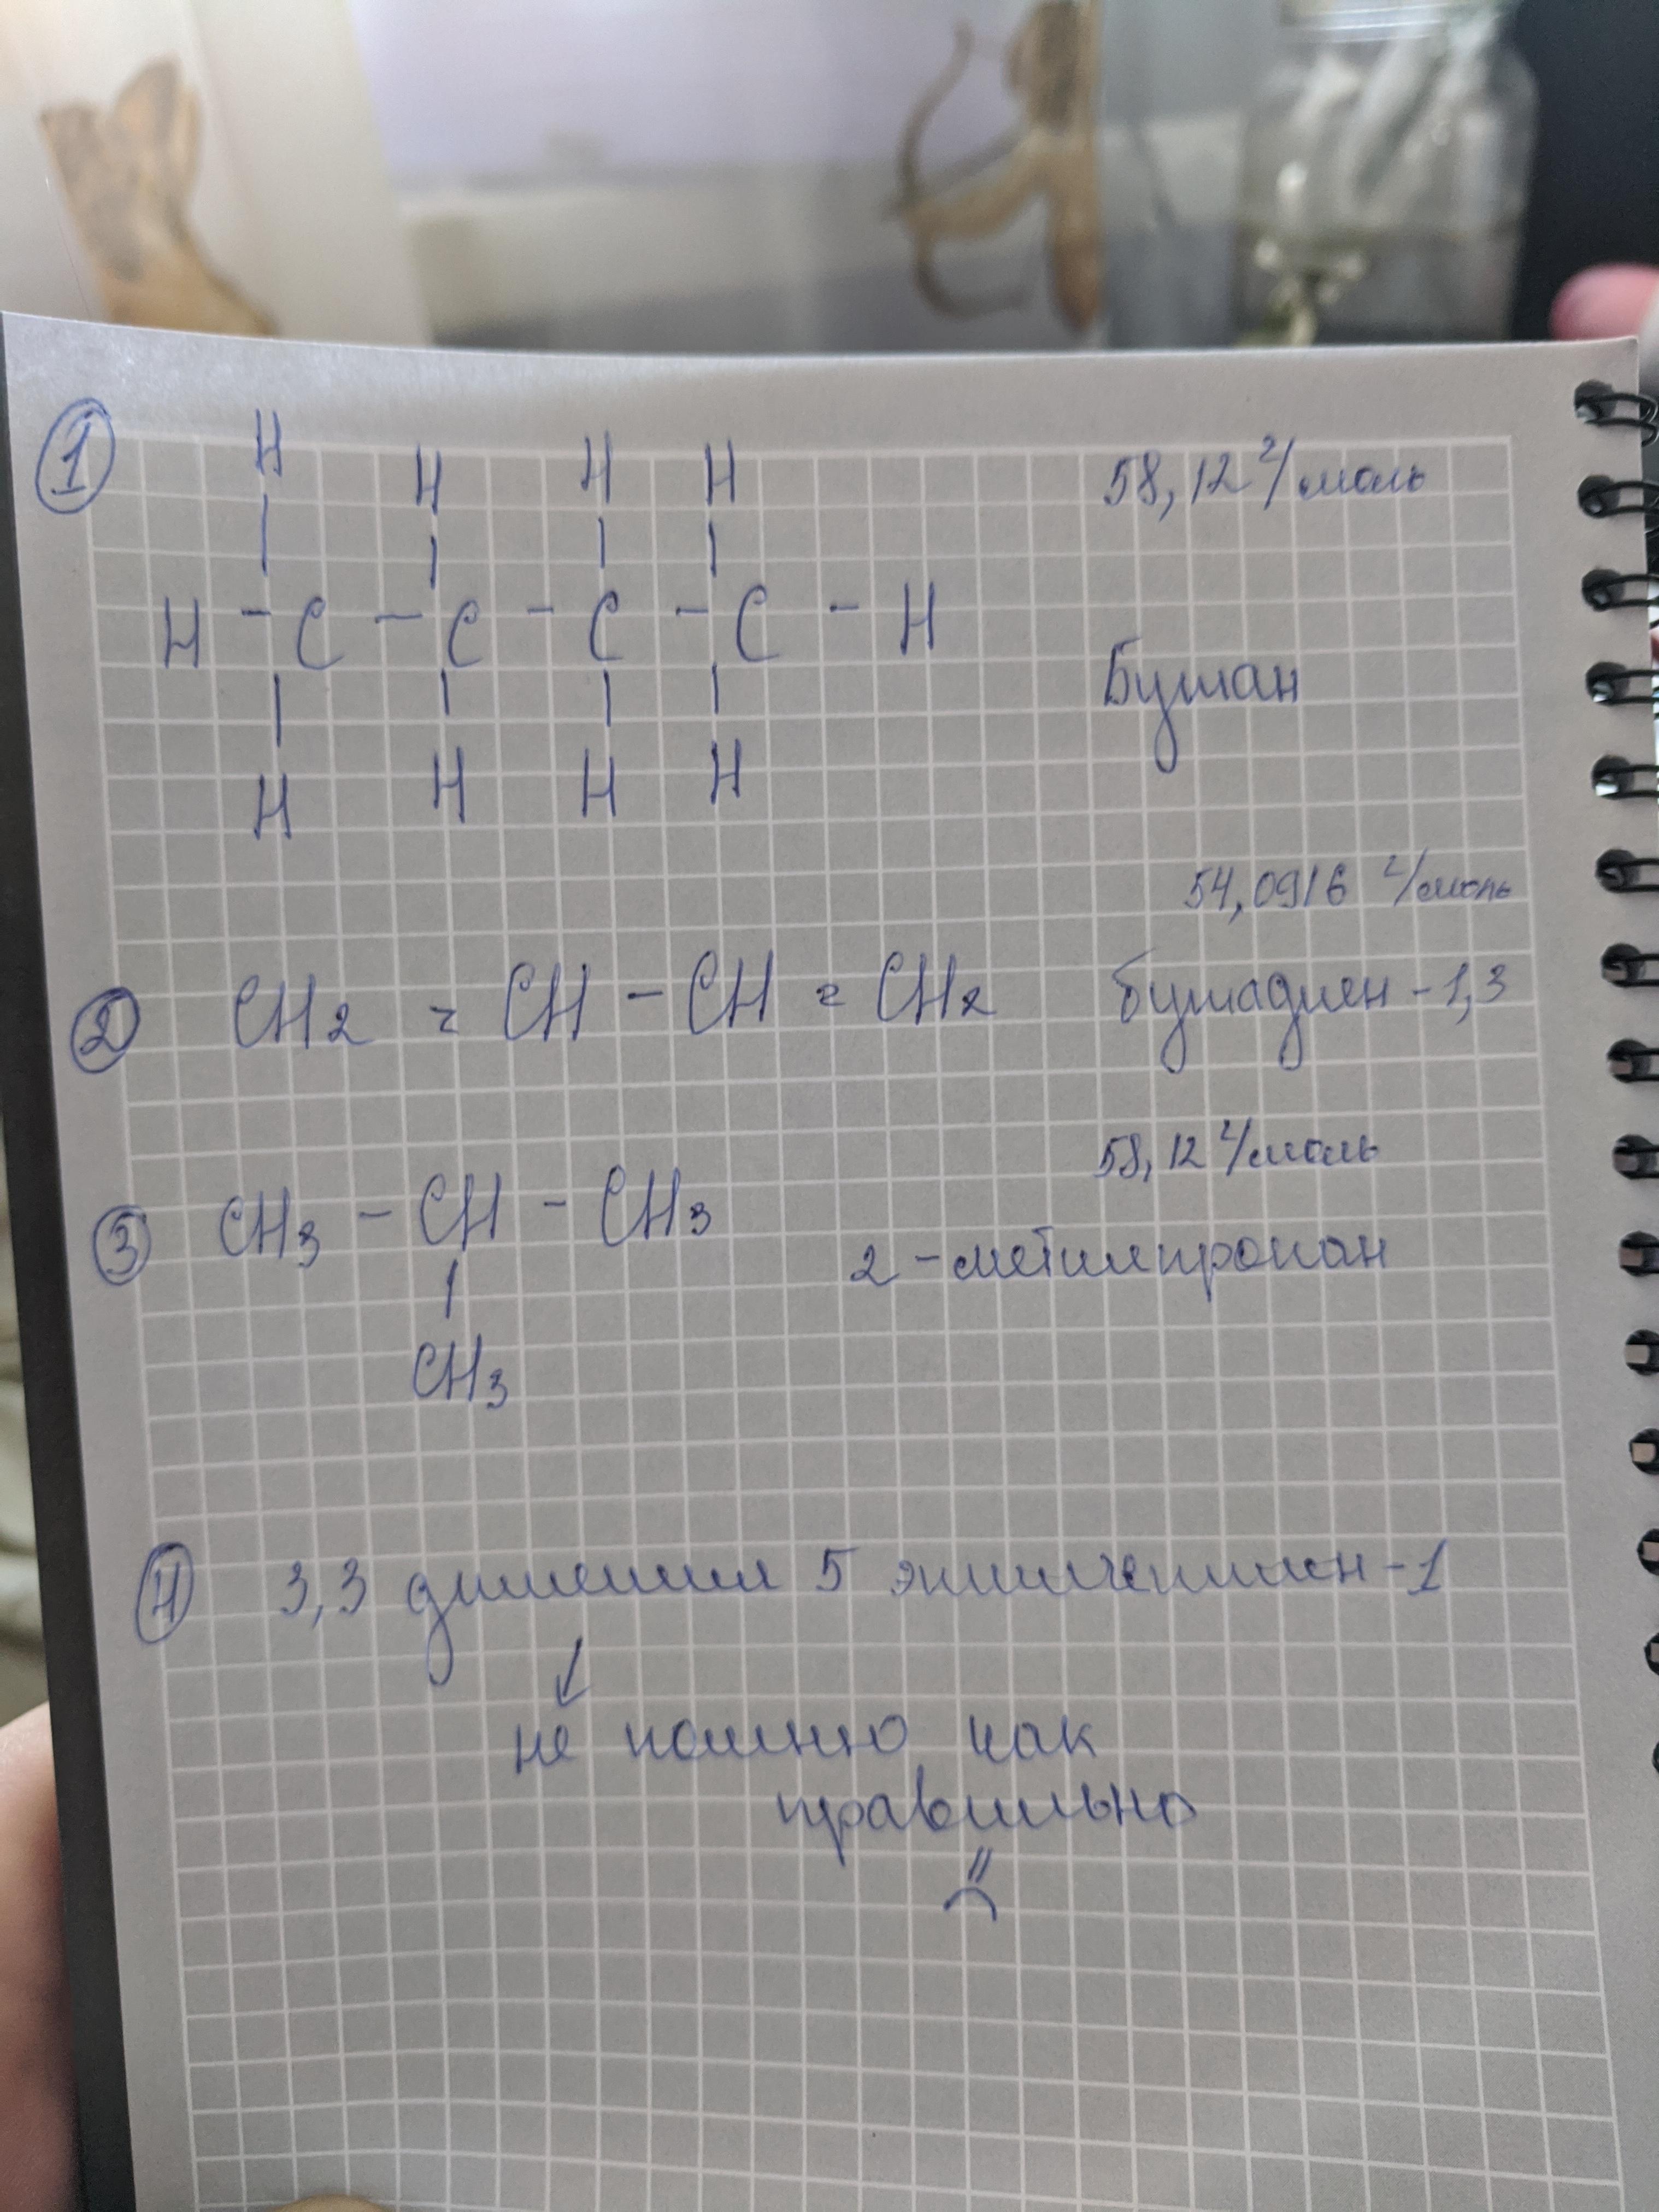 1
H H H H
58,12 г/моль
H - C - C - C - C - H
Бутан
H H H H
54,0916 г/моль
2 CH2 = CH - CH = CH2 бутадиен - 1,3
58,12 г/моль
3 CH3 - CH - CH3
2 - метилпропан
CH3
4 3,3 диметил 5 этилгептин - 1
не помню как
правильно